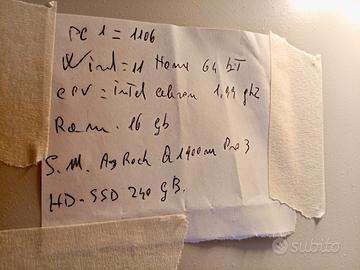 PC 1 = 1106
Wind = 11 Home 64 bT
CPU = intel celeron 1,99 ghz
Ram. 16 gb
S.M. AsRock Q1900M Pro 3
HD-SSD 240 GB.
subito